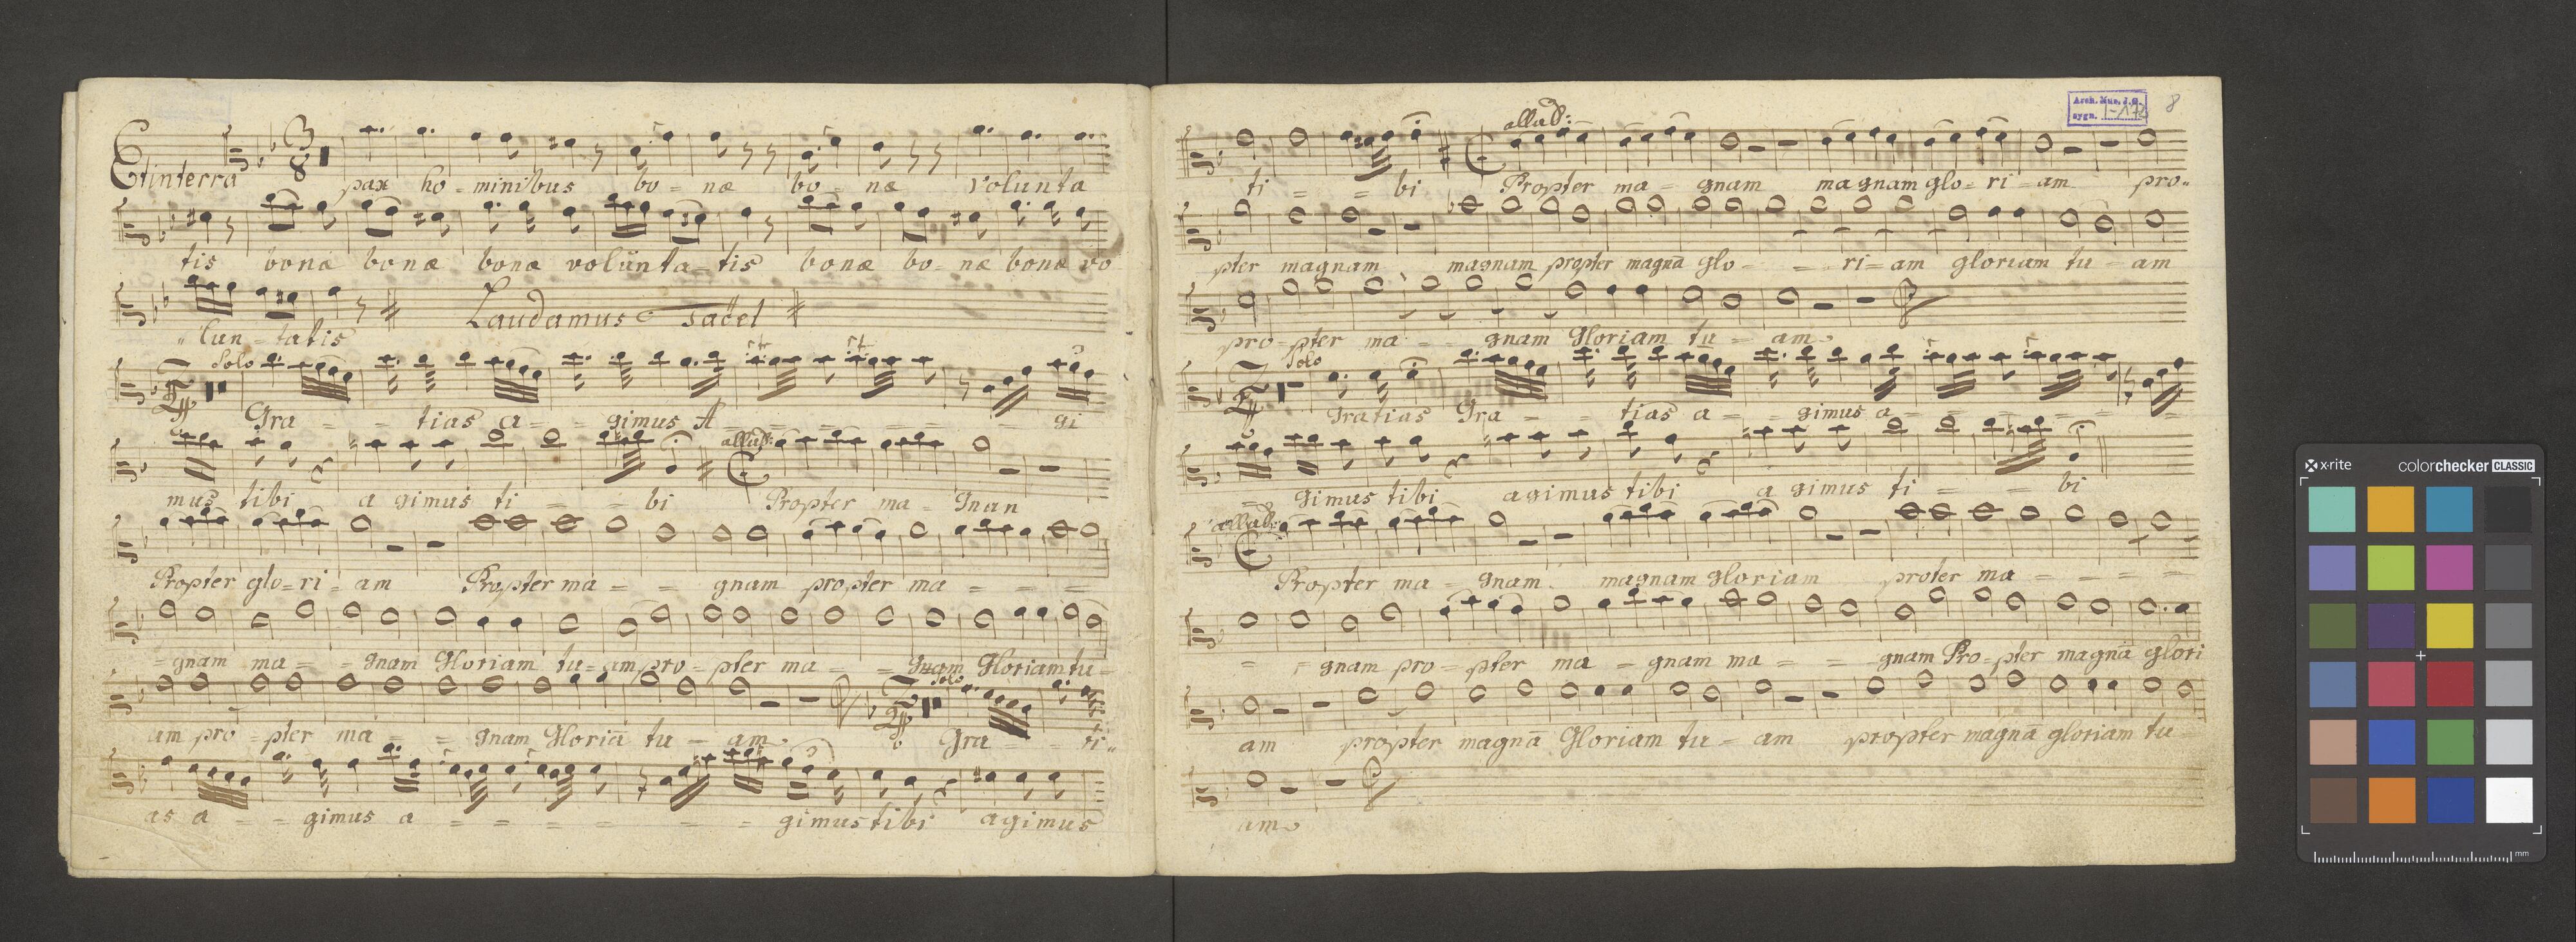 Et in terra pax ho = minibus bo = næ bo = næ volunta
tis bonæ bonæ bonæ volünta = tis bonæ bo = næ bonæ vo
" lun = tatis Laudamus tacet
Solo
Gra = = tias a = = gimus A = = = = = gi
allab:
mus tibi a gimus ti = = bi Propter ma = gnan
Propter glo = ri = am Propter ma = = gnam propter ma = = =
= gnam ma = = gnam Gloriam tu = am pro = pter ma = = gnam Gloriam tu =
Solo
am pro = pter ma = = gnam Gloriã tu = am. Gra = = ti"
as a = = gimus a = = = = = = = gimus tibi agimus
Arch. Mus. J.G.
sygn. I-172
8
allab:
ti = = bi Propter ma = gnam magnam glo = ri = am pro"
pter magnam magnam propter magnã glo = = = ri = am gloriam tu = am
pro = pter ma = = gnam Gloriam tu = am
Solo
Gratias Gra = = tias a = = gimus a = = = = =
= gimus tibi agimus tibi a gimus ti = = bi
allab:
Propter ma = gnam magnam Gloriam proter ma = = = =
= = gnam pro = pter ma = gnam ma = = gnam Pro = pter magnã glori
am propter magnã Gloriam tu = am propter magnã gloriam tu =
am
x-rite colorchecker CLASSIC
mm